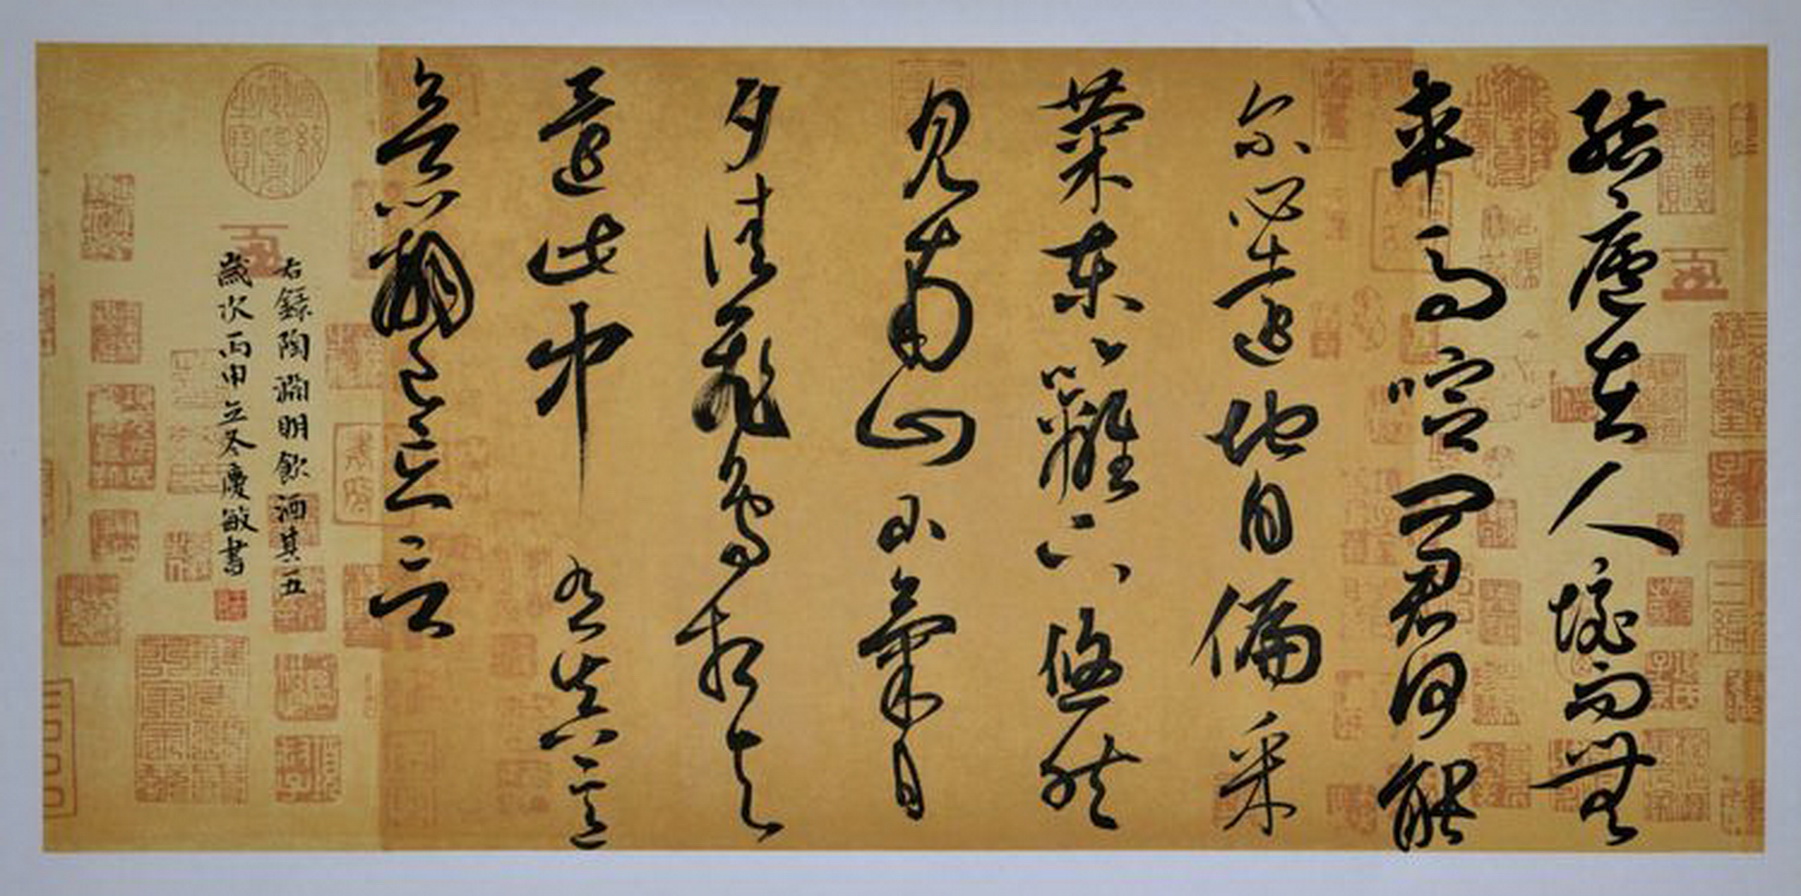 結廬在人境而無
車馬喧問君何能
尔心遠地自偏采
菊東籬下悠然
見南山山氣日
夕佳飛鳥相與
還此中有真意
欲辨已忘言
右錄陶淵明飲酒其五
歲次丙申立冬慶敏書